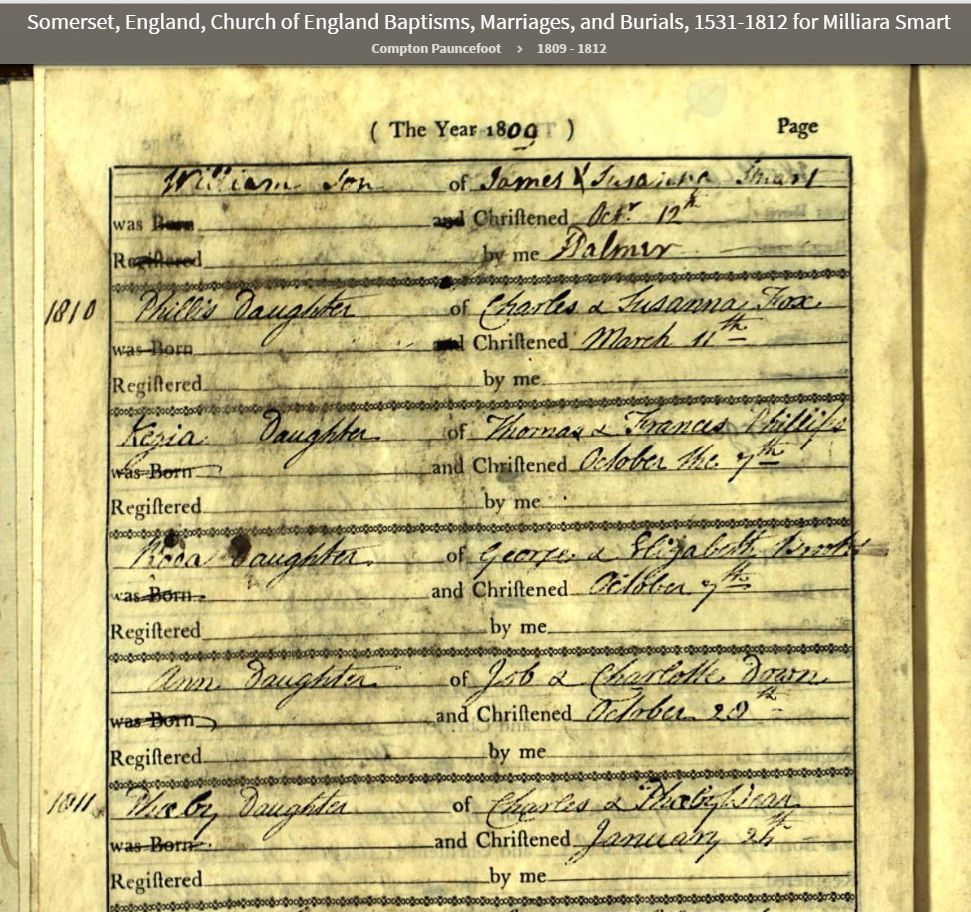 Somerset, England, Church of England Baptisms, Marriages, and Burials, 1531-1812 for Milliara Smart
Compton Pauncefoot > 1809 - 1812
( The Year 1809 ) Page
William Son of James & Susanna Smart
was Born and Christened Octr 12th
Registered by me Palmer
1810 Phillis Daughter of Charles & Susanna Fox
was Born and Christened March 11th
Registered by me
Kezia Daughter of Thomas & Frances Phillips
was Born and Christened October the 7th
Registered by me
Daughter of George & Elizabeth
was Born and Christened October 7th
Registered by me
Ann Daughter of Job & Charlotte Down
was Born and Christened October 20th
Registered by me
1811 Phœby Daughter of Charles & Phœby Dean
was Born and Christened January
Registered by me